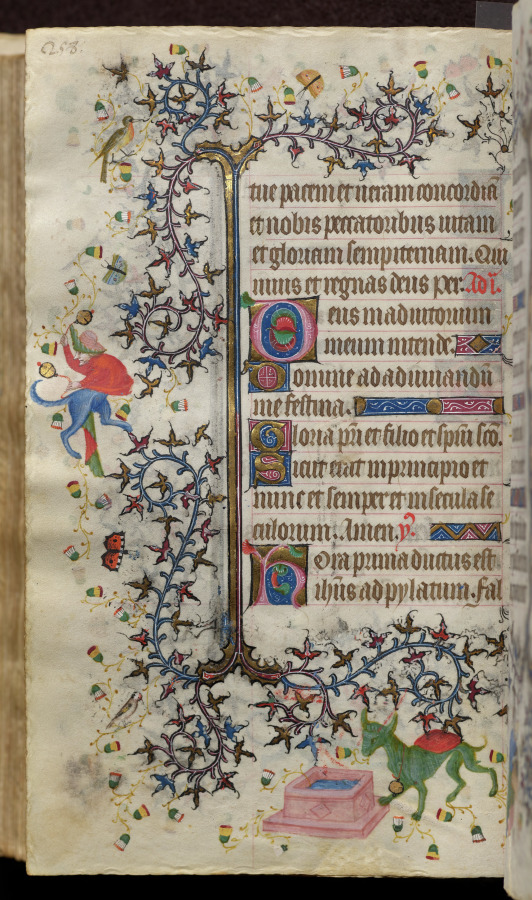 253.
tue pacem et ueram concordia
et nobis peccatoribus uitam
et gloriam sempiternam. Qui
uiuis et regnas deus per. Ad .i.
Deus in adiutorium
meum intende
Domine ad adiuuandū
me festina.
Gloria pri et filio et spui sco.
Sicut erat in principio et
nunc et semper et in secula se
culorum. Amen. y.
Hora prima ductus est
ihus ad pylatum. fal